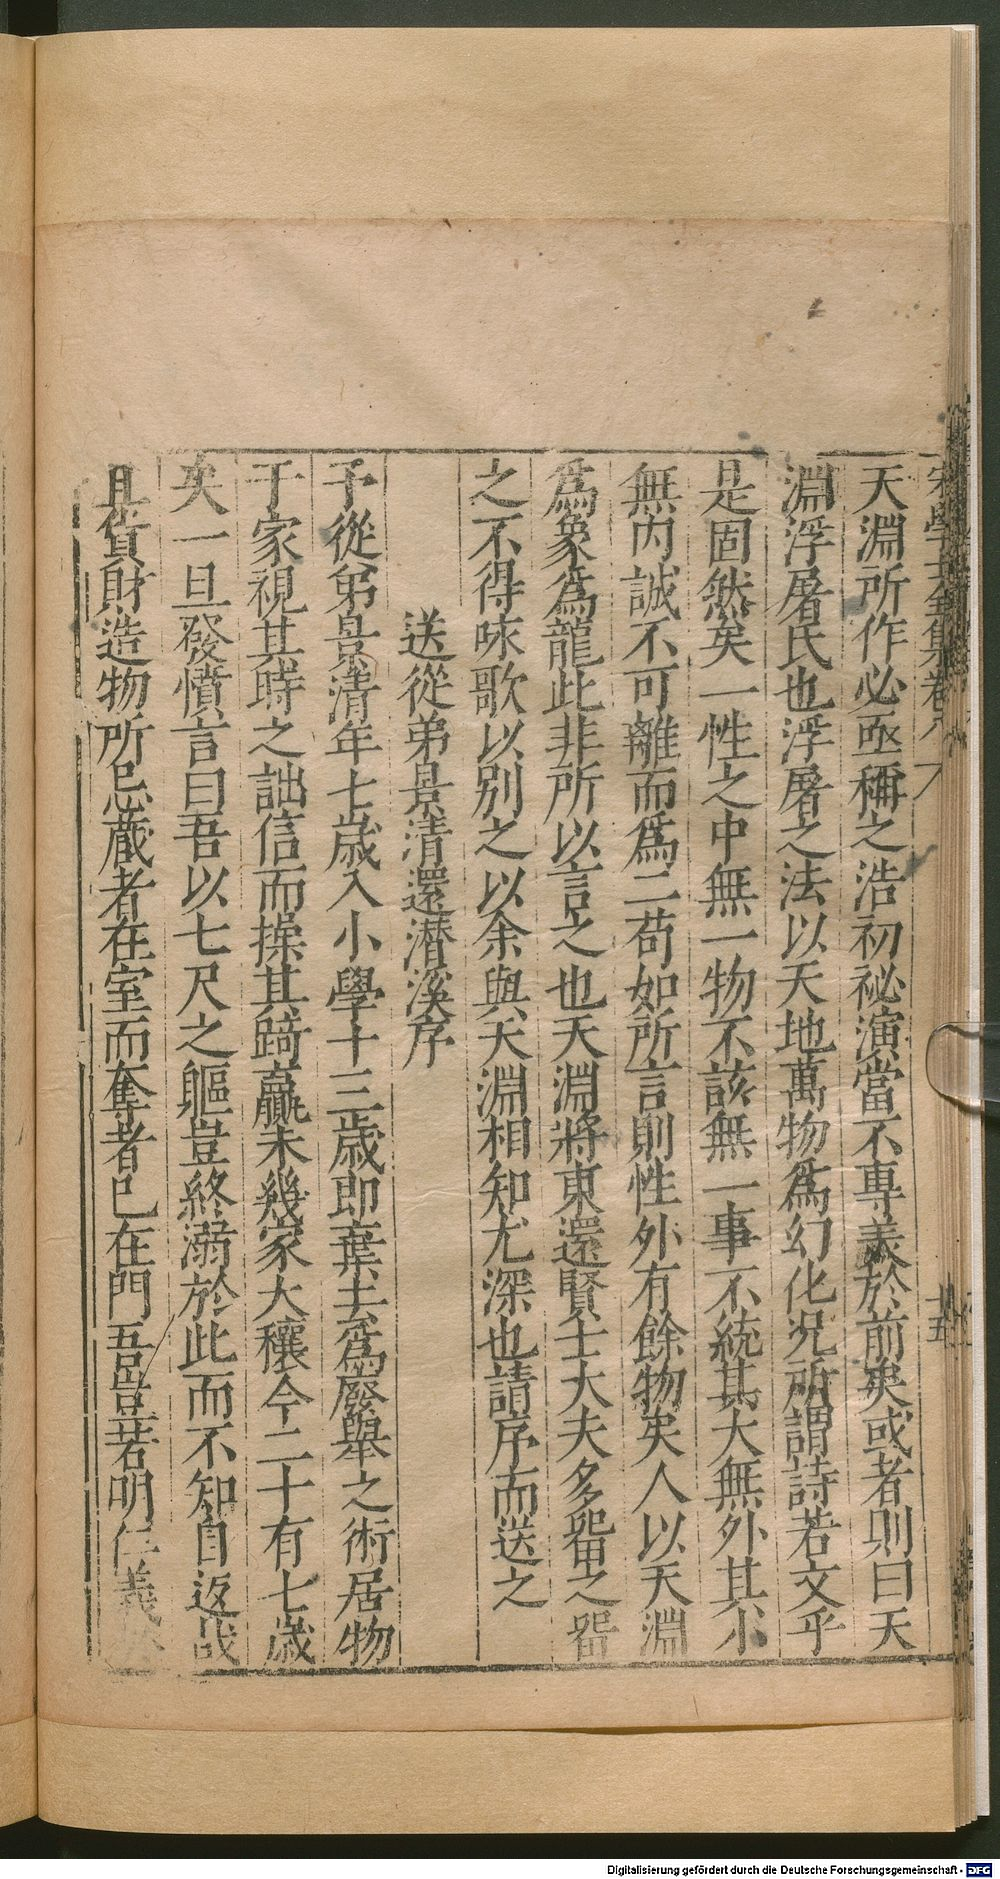 宋學士全集卷八
十五
天淵所作必亟稱之浩初祕演當不專美於前矣或者則曰天
淵浮屠氏也浮屠之法以天地萬物爲幻化况所謂詩若文乎
是固然矣一性之中無一物不該無一事不統其大無外其小
無内誠不可離而爲二苟如所言則性外有餘物矣人以天淵
爲象爲龍此非所以言之也天淵將東還賢士大夫多留之留
之不得咏歌以别之以余與天淵相知尤深也請序而送之
送從弟景清還潛溪序
予從弟景清年七歳入小學十三歳即棄去爲廢舉之術居物
于家視其時之詘信而操其踦贏未幾家大穰今二十有七歳
矣一旦發憤言曰吾以七尺之軀豈終溺於此而不知自返哉
且貨財造物所忌蔵者在室而奪者已在門吾豈若明仁義
Digitalisierung gefördert durch die Deutsche Forschungsgemeinschaft - DFG